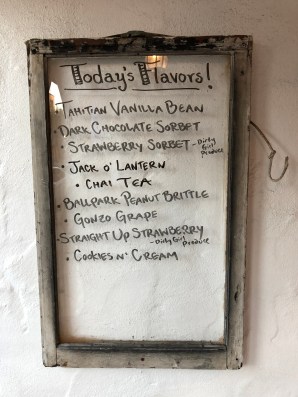 Today's Flavors!
Tahitian Vanilla Bean
• Dark Chocolate Sorbet
• Strawberry Sorbet - Dirty Girl Produce
• Jack o' Lantern
• Chai Tea
• Ballpark Peanut Brittle
• Gonzo Grape
• Straight Up Strawberry
- Dirty Girl Produce
• Cookies n' Cream